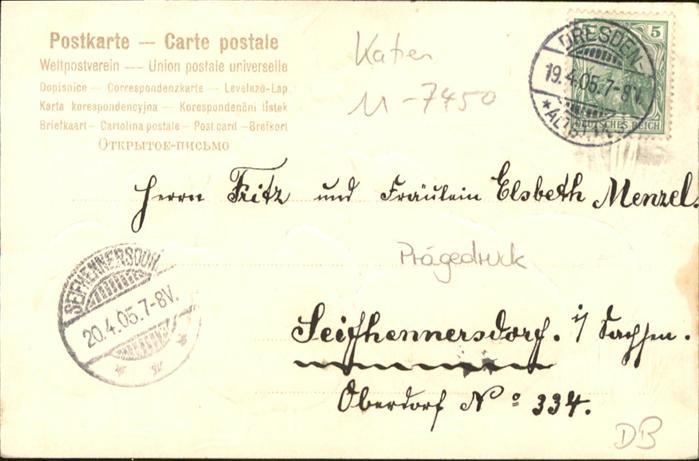 Postkarte — Carte postale
Weltpostverein — Union postale universelle
Dopisnice — Correspondenzkarte — Levelező-Lap
Karta korespondencyjna — Korespondenční lístek
Briefkaart — Cartolina postale — Post card — Brefkort
Открытое-письмо
M-7450
5
DEUTSCHES REICH
DRESDEN-
19.4.05.7-8V.
*ALTST.
Herrn Fritz und Fräulein Elsbeth Menzel.
Prägedruck
SEIFHENNERSDORF
20.4.05.7-8V.
Seifhennersdorf. i/ Sachsen.
Oberdorf No 334.
DB